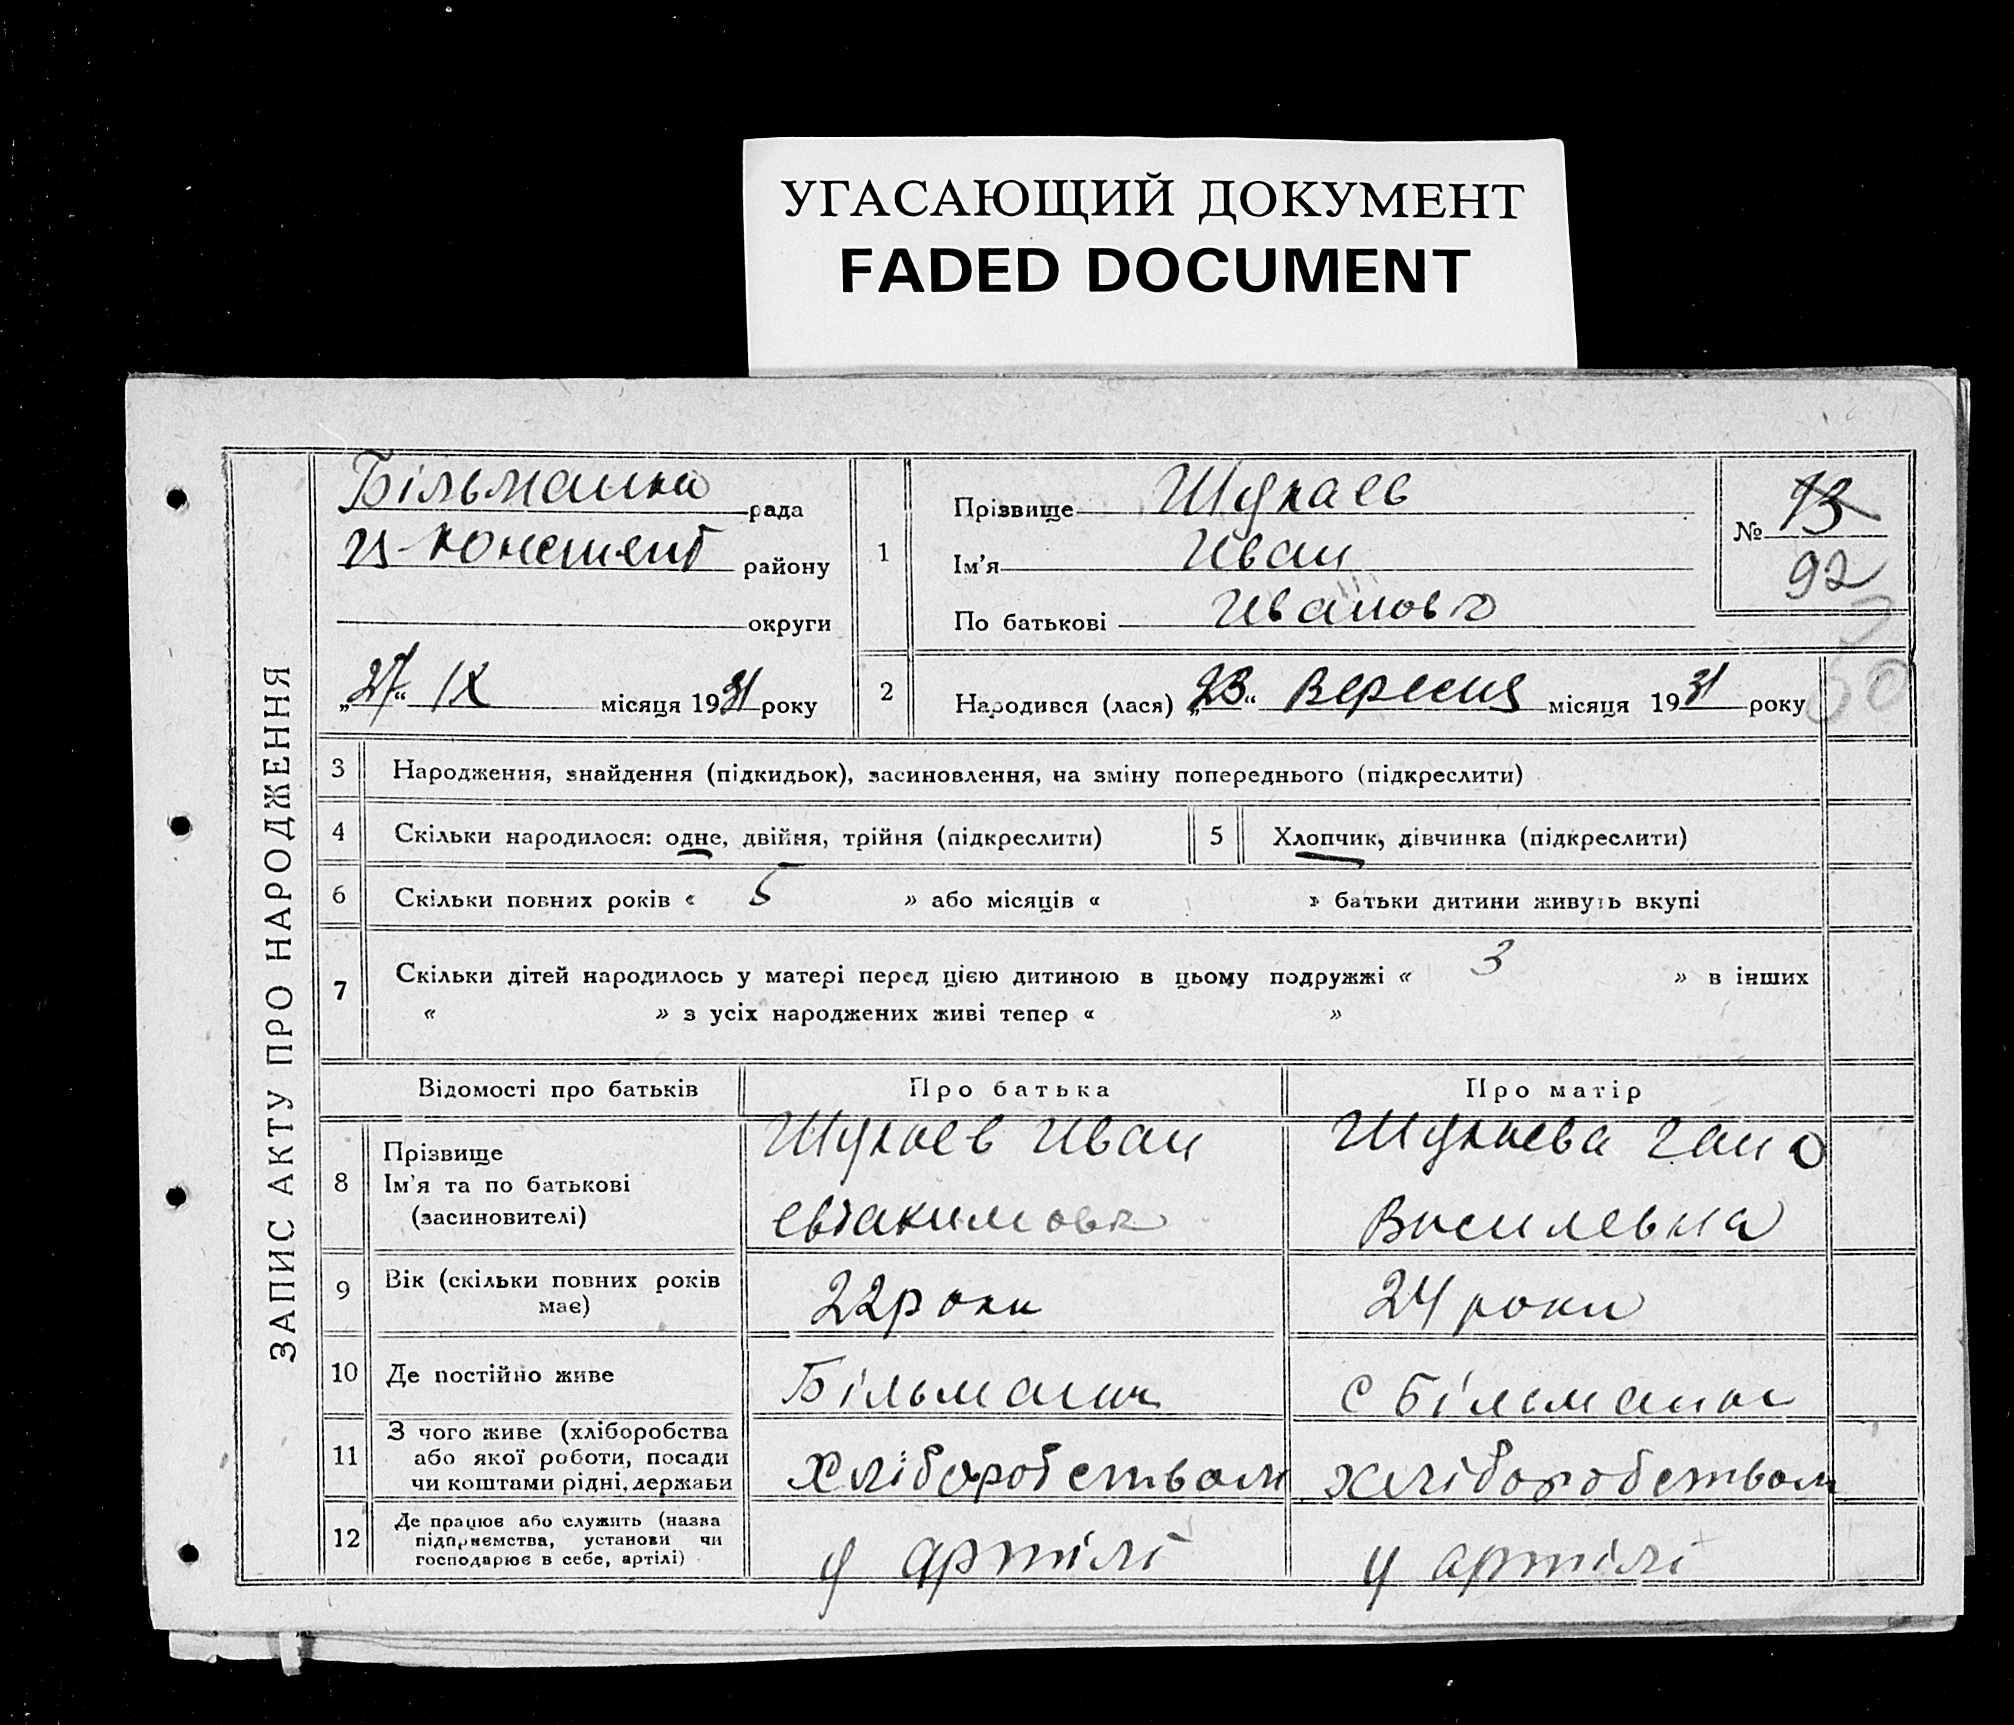 УГАСАЮЩИЙ ДОКУМЕНТ
FADED DOCUMENT
ЗАПИС АКТУ ПРО НАРОДЖЕННЯ
Більманка рада
району
округи
„27“ IX місяця 1931 року
1
Прізвище Шукаев
Ім'я Иван
По батькові Иванов
№ 13
92
60
2
Народився (лася) „23“ Вересня місяця 1931 року
3 Народження, знайдення (підкидьок), засиновлення, на зміну попереднього (підкреслити)
4 Скільки народилося: одне, двійня, трійня (підкреслити)
5 Хлопчик, дівчинка (підкреслити)
6 Скільки повних років « 5 » або місяців « » батьки дитини живуть вкупі
7 Скільки дітей народилось у матері перед цією дитиною в цьому подружжі « 3 » в інших
« » з усіх народжених живі тепер « »
Відомості про батьків Про батька Про матір
8 Прізвище
Ім'я та по батькові
(засиновителі)
Шукаев Иван
Шукаева Гана
Василевна
9 Вік (скільки повних років
має)
22 роки
24 роки
10 Де постійно живе
Більманк
с Більманка
11 З чого живе (хліборобства
або якої роботи, посади
чи коштами рідні, держави
хліборобством
хліборобством
12 Де працює або служить (назва
підприємства, установи чи
господарює в себе, артілі)
у артілі
у артілі